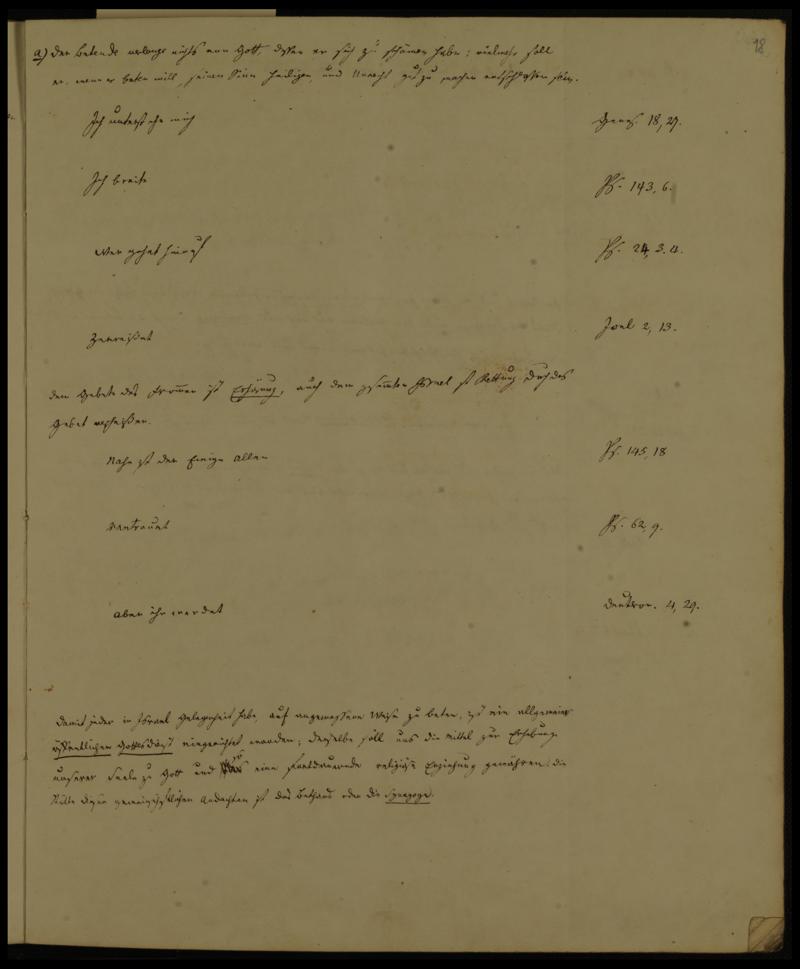 18
a) Der Betende verlange nichts von Gott, dessen er sich zu schämen habe; vielmehr soll
er, wenn er beten will, seinen Sinn heiligen, und Unrecht gut zu machen entschlossen sein.
Ich unterstehe mich Genes. 18, 27.
Ich breite Ps. 143, 6.
Wer gehet hinauf Ps. 24, 3. 4.
Zerreißet Joel 2, 13.
Dem Gebete des Frommen ist Erhörung, auch dem gesammten Israel ist Rettung durch das
Gebet verheißen.
Nahe ist der Ewige allen Ps. 145, 18
Vertrauet Ps. 62, 9.
Aber ihr werdet Deuteron. 4, 29.
Damit jeder in Israel Gelegenheit habe, auf angemessene Weise zu beten, ist ein allgemeiner
öffentlicher Gottesdienst eingerichtet worden; derselbe soll uns die Mittel zur Erhebung
unserer Seele zu Gott und eine fortdauernde religiöse Erziehung gewähren; die
Stätte dieser gemeinschaftlichen Andachten ist das Bethaus oder die Synagoge.